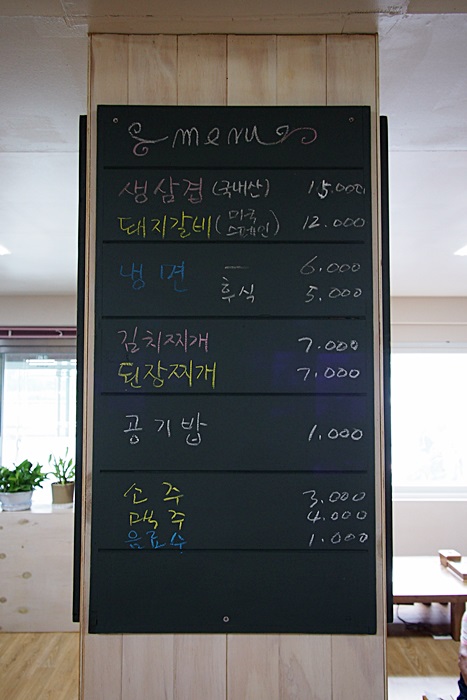 menu
생삼겹 (국내산) 15.000
돼지갈비 (미국 스페인) 12.000
냉면 — 6.000
후식 5.000
김치찌개 7.000
된장찌개 7.000
공기밥 1.000
소주 3.000
맥주 4.000
음료수 1.000